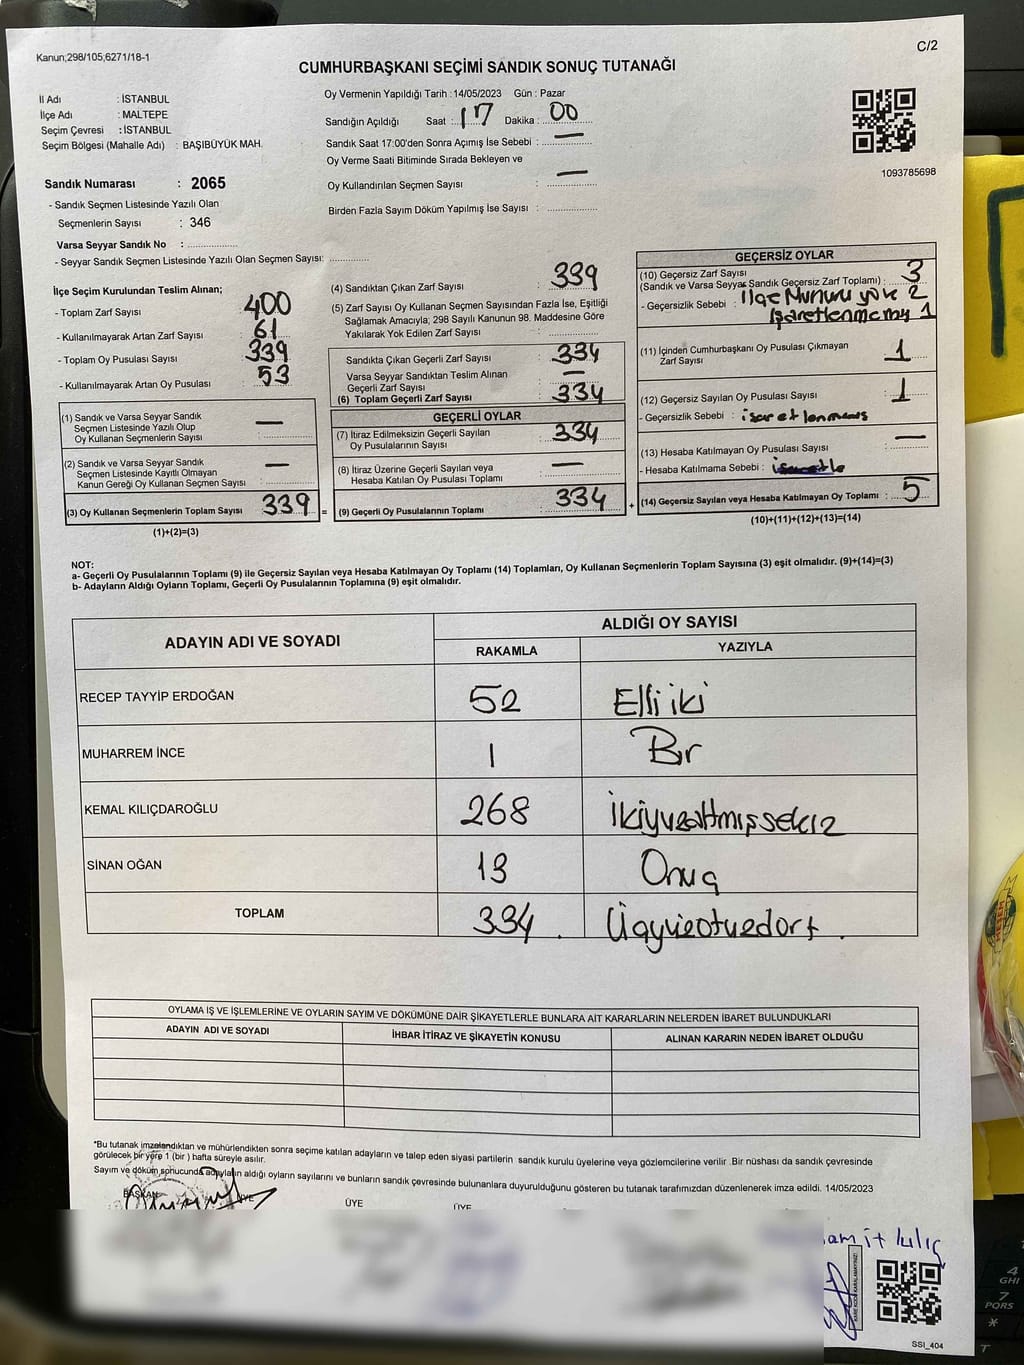 Kanun;298/105,6271/18-1
C/2
CUMHURBAŞKANI SEÇİMİ SANDIK SONUÇ TUTANAĞI
İl Adı : İSTANBUL
İlçe Adı : MALTEPE
Seçim Çevresi : İSTANBUL
Seçim Bölgesi (Mahalle Adı) : BAŞIBÜYÜK MAH.
Sandık Numarası : 2065
- Sandık Seçmen Listesinde Yazılı Olan
Seçmenlerin Sayısı : 346
Varsa Seyyar Sandık No : ..................
- Seyyar Sandık Seçmen Listesinde Yazılı Olan Seçmen Sayısı: ..............
Oy Vermenin Yapıldığı Tarih : 14/05/2023 Gün : Pazar
Sandığın Açıldığı Saat : 17 Dakika : 00
Sandık Saat 17:00'den Sonra Açımış İse Sebebi : —
Oy Verme Saati Bitiminde Sırada Bekleyen ve
Oy Kullandırılan Seçmen Sayısı : —
Birden Fazla Sayım Döküm Yapılmış İse Sayısı : ..................
1093785698
İlçe Seçim Kurulundan Teslim Alınan;
- Toplam Zarf Sayısı : 400
- Kullanılmayarak Artan Zarf Sayısı : 61
- Toplam Oy Pusulası Sayısı : 339
- Kullanılmayarak Artan Oy Pusulası : 53
(1) Sandık ve Varsa Seyyar Sandık
Seçmen Listesinde Yazılı Olup
Oy Kullanan Seçmenlerin Sayısı : —
(2) Sandık ve Varsa Seyyar Sandık
Seçmen Listesinde Kayıtlı Olmayan
Kanun Gereği Oy Kullanan Seçmen Sayısı : —
(3) Oy Kullanan Seçmenlerin Toplam Sayısı 339 =
(1)+(2)=(3)
(4) Sandıktan Çıkan Zarf Sayısı : 339
(5) Zarf Sayısı Oy Kullanan Seçmen Sayısından Fazla İse, Eşitliği
Sağlamak Amacıyla; 298 Sayılı Kanunun 98. Maddesine Göre
Yakılarak Yok Edilen Zarf Sayısı : ..................
Sandıkta Çıkan Geçerli Zarf Sayısı : 334
Varsa Seyyar Sandıktan Teslim Alınan
Geçerli Zarf Sayısı : —
(6) Toplam Geçerli Zarf Sayısı : 334
GEÇERLİ OYLAR
(7) İtiraz Edilmeksizin Geçerli Sayılan
Oy Pusulalarının Sayısı : 334
(8) İtiraz Üzerine Geçerli Sayılan veya
Hesaba Katılan Oy Pusulası Toplamı : —
(9) Geçerli Oy Pusulalarının Toplamı : 334 +
GEÇERSİZ OYLAR
(10) Geçersiz Zarf Sayısı
(Sandık ve Varsa Seyyar Sandık Geçersiz Zarf Toplamı) : 3
- Geçersizlik Sebebi : ilçe Muhuru yok 2
işaretlenmemiş 1
(11) İçinden Cumhurbaşkanı Oy Pusulası Çıkmayan
Zarf Sayısı : 1
(12) Geçersiz Sayılan Oy Pusulası Sayısı : 1
- Geçersizlik Sebebi :
(13) Hesaba Katılmayan Oy Pusulası Sayısı : —
- Hesaba Katılmama Sebebi :
(14) Geçersiz Sayılan veya Hesaba Katılmayan Oy Toplamı : 5
(10)+(11)+(12)+(13)=(14)
NOT:
a- Geçerli Oy Pusulalarının Toplamı (9) ile Geçersiz Sayılan veya Hesaba Katılmayan Oy Toplamı (14) Toplamları, Oy Kullanan Seçmenlerin Toplam Sayısına (3) eşit olmalıdır. (9)+(14)=(3)
b- Adayların Aldığı Oyların Toplamı, Geçerli Oy Pusulalarının Toplamına (9) eşit olmalıdır.
ADAYIN ADI VE SOYADI ALDIĞI OY SAYISI
RAKAMLA YAZIYLA
RECEP TAYYİP ERDOĞAN 52 Elli iki
MUHARREM İNCE 1 Bir
KEMAL KILIÇDAROĞLU 268 ikiyuzaltmışsekiz
SİNAN OĞAN 13 Onuç
TOPLAM 334 Üçyüzotuzdört
OYLAMA İŞ VE İŞLEMLERİNE VE OYLARIN SAYIM VE DÖKÜMÜNE DAİR ŞİKAYETLERLE BUNLARA AİT KARARLARIN NELERDEN İBARET BULUNDUKLARI
ADAYIN ADI VE SOYADI İHBAR İTİRAZ VE ŞİKAYETİN KONUSU ALINAN KARARIN NEDEN İBARET OLDUĞU
*Bu tutanak imzalandıktan ve mühürlendikten sonra seçime katılan adayların ve talep eden siyasi partilerin sandık kurulu üyelerine veya gözlemcilerine verilir .Bir nüshası da sandık çevresinde
görülecek bir yere 1 (bir ) hafta süreyle asılır.
Sayım ve döküm sonucunda adayların aldığı oyların sayılarını ve bunların sandık çevresinde bulunanlara duyurulduğunu gösteren bu tutanak tarafımızdan düzenlenerek imza edildi. 14/05/2023
BAŞKAN ÜYE ÜYE ÜYE
SSİ_404
4
GHI
7
PQRS
*